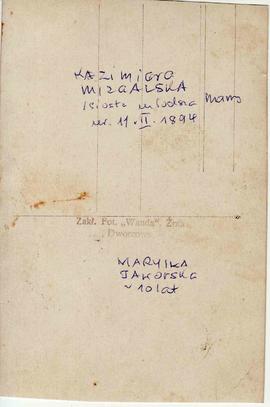 KAZIMIERA
MIZGALSKA
siostra młodsza Mamy
ur. 11. II. 1894
Zakł. Fot. „Wanda”,
Dworcowa
MARYJKA
JAWORSKA
~ 10 lat